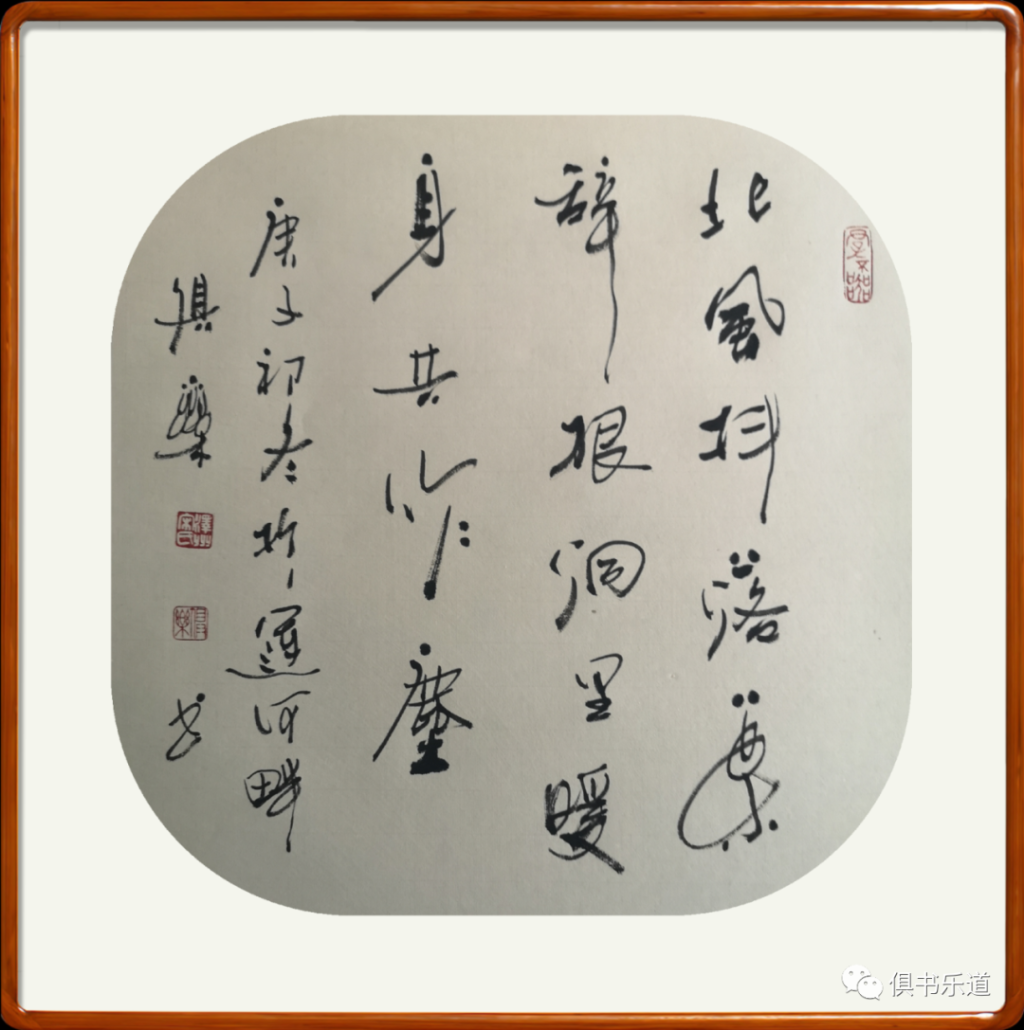 北風抖落葉
辭根洞里暖
身共作塵
庚子初冬於運河畔
俱樂
书
俱书乐道